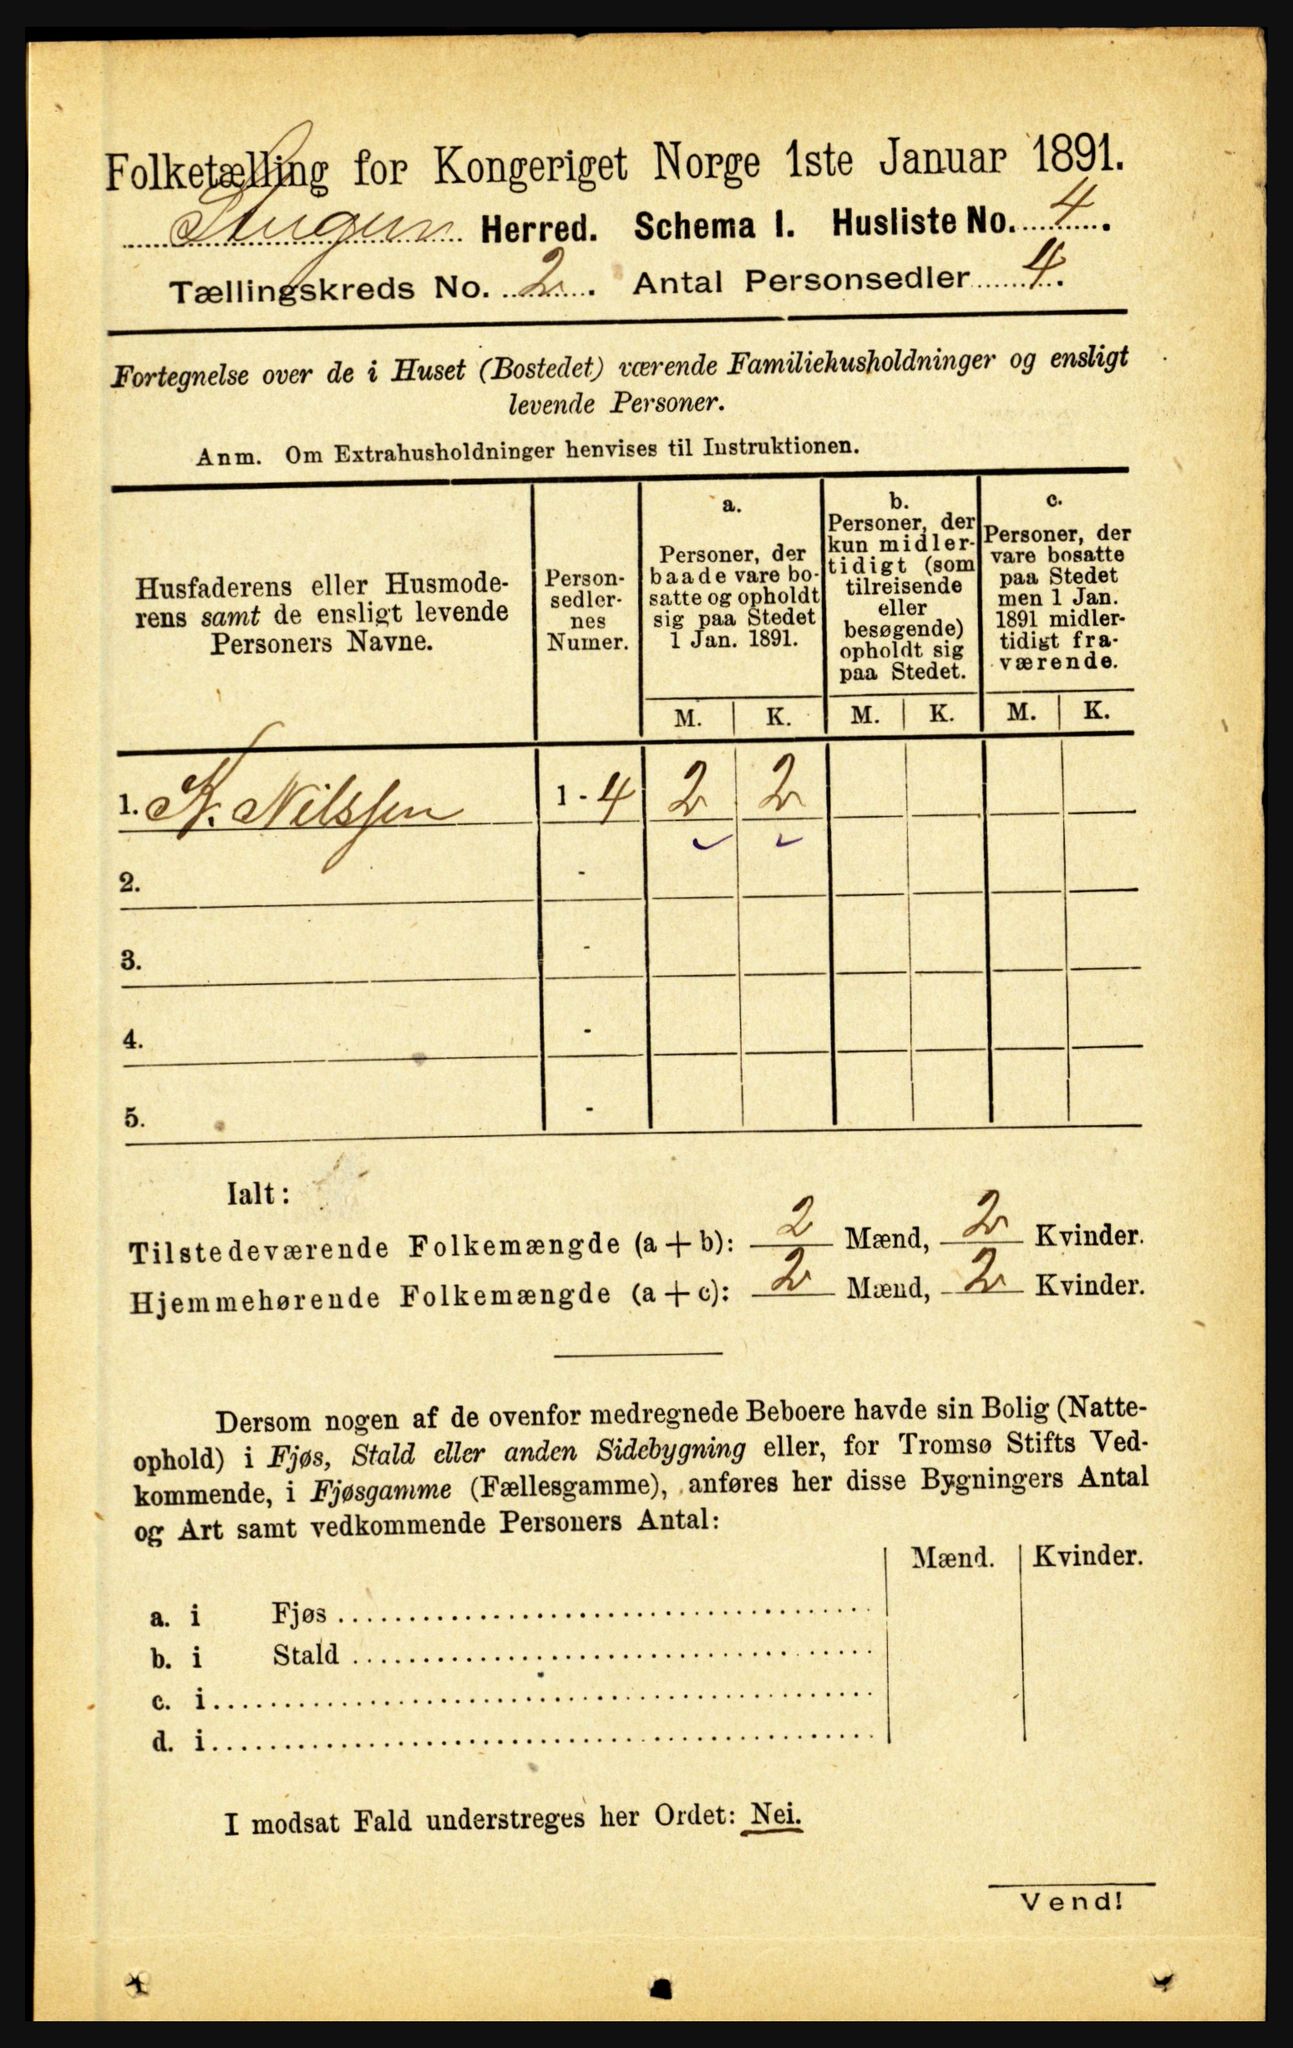 Folketælling for Kongeriget Norge 1ste Januar 1891.
Herred. Schema I. Husliste No. 4.
Tællingskreds No. 2. Antal Personsedler 4.
Fortegnelse over de i Huset (Bostedet) værende Familiehusholdninger og ensligt
levende Personer.
Anm. Om Extrahusholdninger henvises til Instruktionen.
Husfaderens eller Husmode-
rens samt de ensligt levende
Personers Navne.
Person-
sedler-
nes
Numer.
a.
Personer, der
baade vare bo-
satte og opholdt
sig paa Stedet
1 Jan. 1891.
b.
Personer, der
kun midler-
tidigt (som
tilreisende
eller
besøgende)
opholdt sig
paa Stedet.
c.
Personer, der
vare bosatte
paa Stedet
men 1 Jan.
1891 midler-
tidigt fra-
værende.
M. K. M. K. M. K.
1. K. Nilssen 1 - 4 2 2
2. -
3. -
4. -
5. -
Ialt:
Tilstedeværende Folkemængde (a + b): 2 Mænd, 2 Kvinder.
Hjemmehørende Folkemængde (a + c): 2 Mænd, 2 Kvinder.
Dersom nogen af de ovenfor medregnede Beboere havde sin Bolig (Natte-
ophold) i Fjøs, Stald eller anden Sidebygning eller, for Tromsø Stifts Ved-
kommende, i Fjøsgamme (Fællesgamme), anføres her disse Bygningers Antal
og Art samt vedkommende Personers Antal:
Mænd. Kvinder.
a. i Fjøs
b. i Stald
c. i
d. i
I modsat Fald understreges her Ordet: Nei.
Vend!